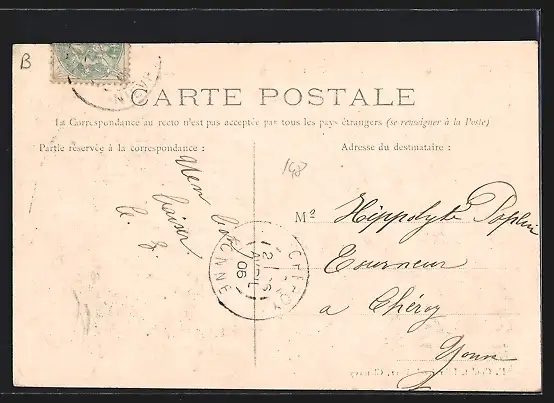 B
CARTE POSTALE
La Correspondance au recto n'est pas acceptée par tous les pays étrangers (se renseigner à la Poste)
Partie réservée à la correspondance :
Adresse du destinataire :
198
baiser
M
Hippolyte Poplin
Tourneur
a Chéroy
Yonne
CHEROY
2
AVRIL
06
YONNE